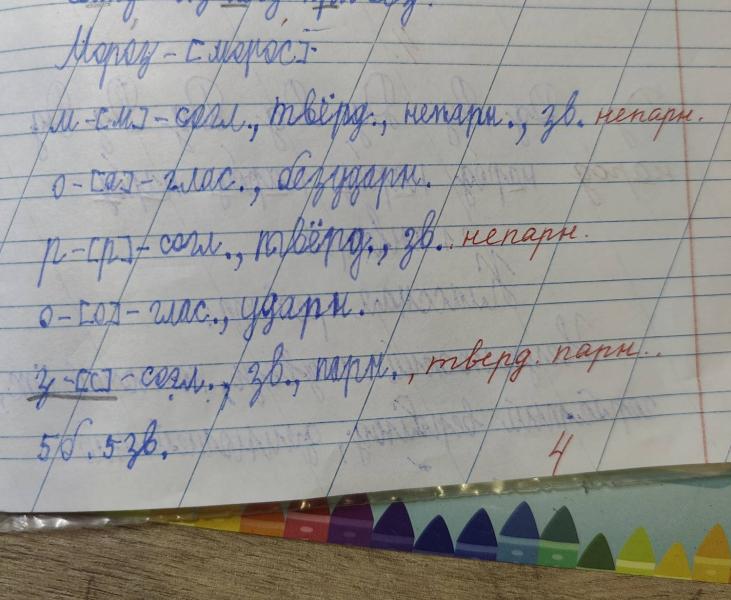 Мороз - [морос]
м - [м] - согл., твёрд., непарн., зв. непарн.
о - [а] - глас., безударн.
р - [р] - согл., твёрд., зв. непарн.
о - [о] - глас., ударн.
з - [с] - согл., зв., парн., тверд. парн..
5 б. 5 зв.
4